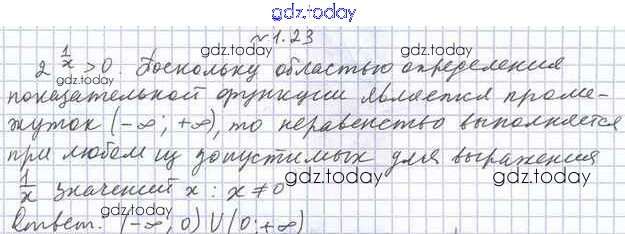 gdz.today
№1.23
2^(1/x) > 0 Поскольку областью определения
показательной функции является проме-
жуток (-∞; +∞), то неравенство выполняется
при любом из допустимых для выражения
1/x значений x : x ≠ 0
Ответ. (-∞; 0) U (0; +∞)
gdz.today
gdz.today
gdz.today
gdz.today
gdz.today
gdz.today
gdz.today
gdz.today